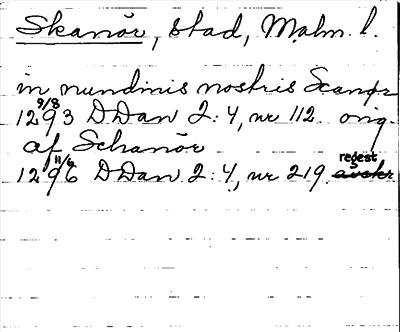 Skanör, stad, Malm. l.
in nundinis nostris Scanør
12 9/8 93 DDan 2:4, nr 112. orig.
af Schanör
12 11/6 96 DDan 2:4, nr 219. regest avskr.